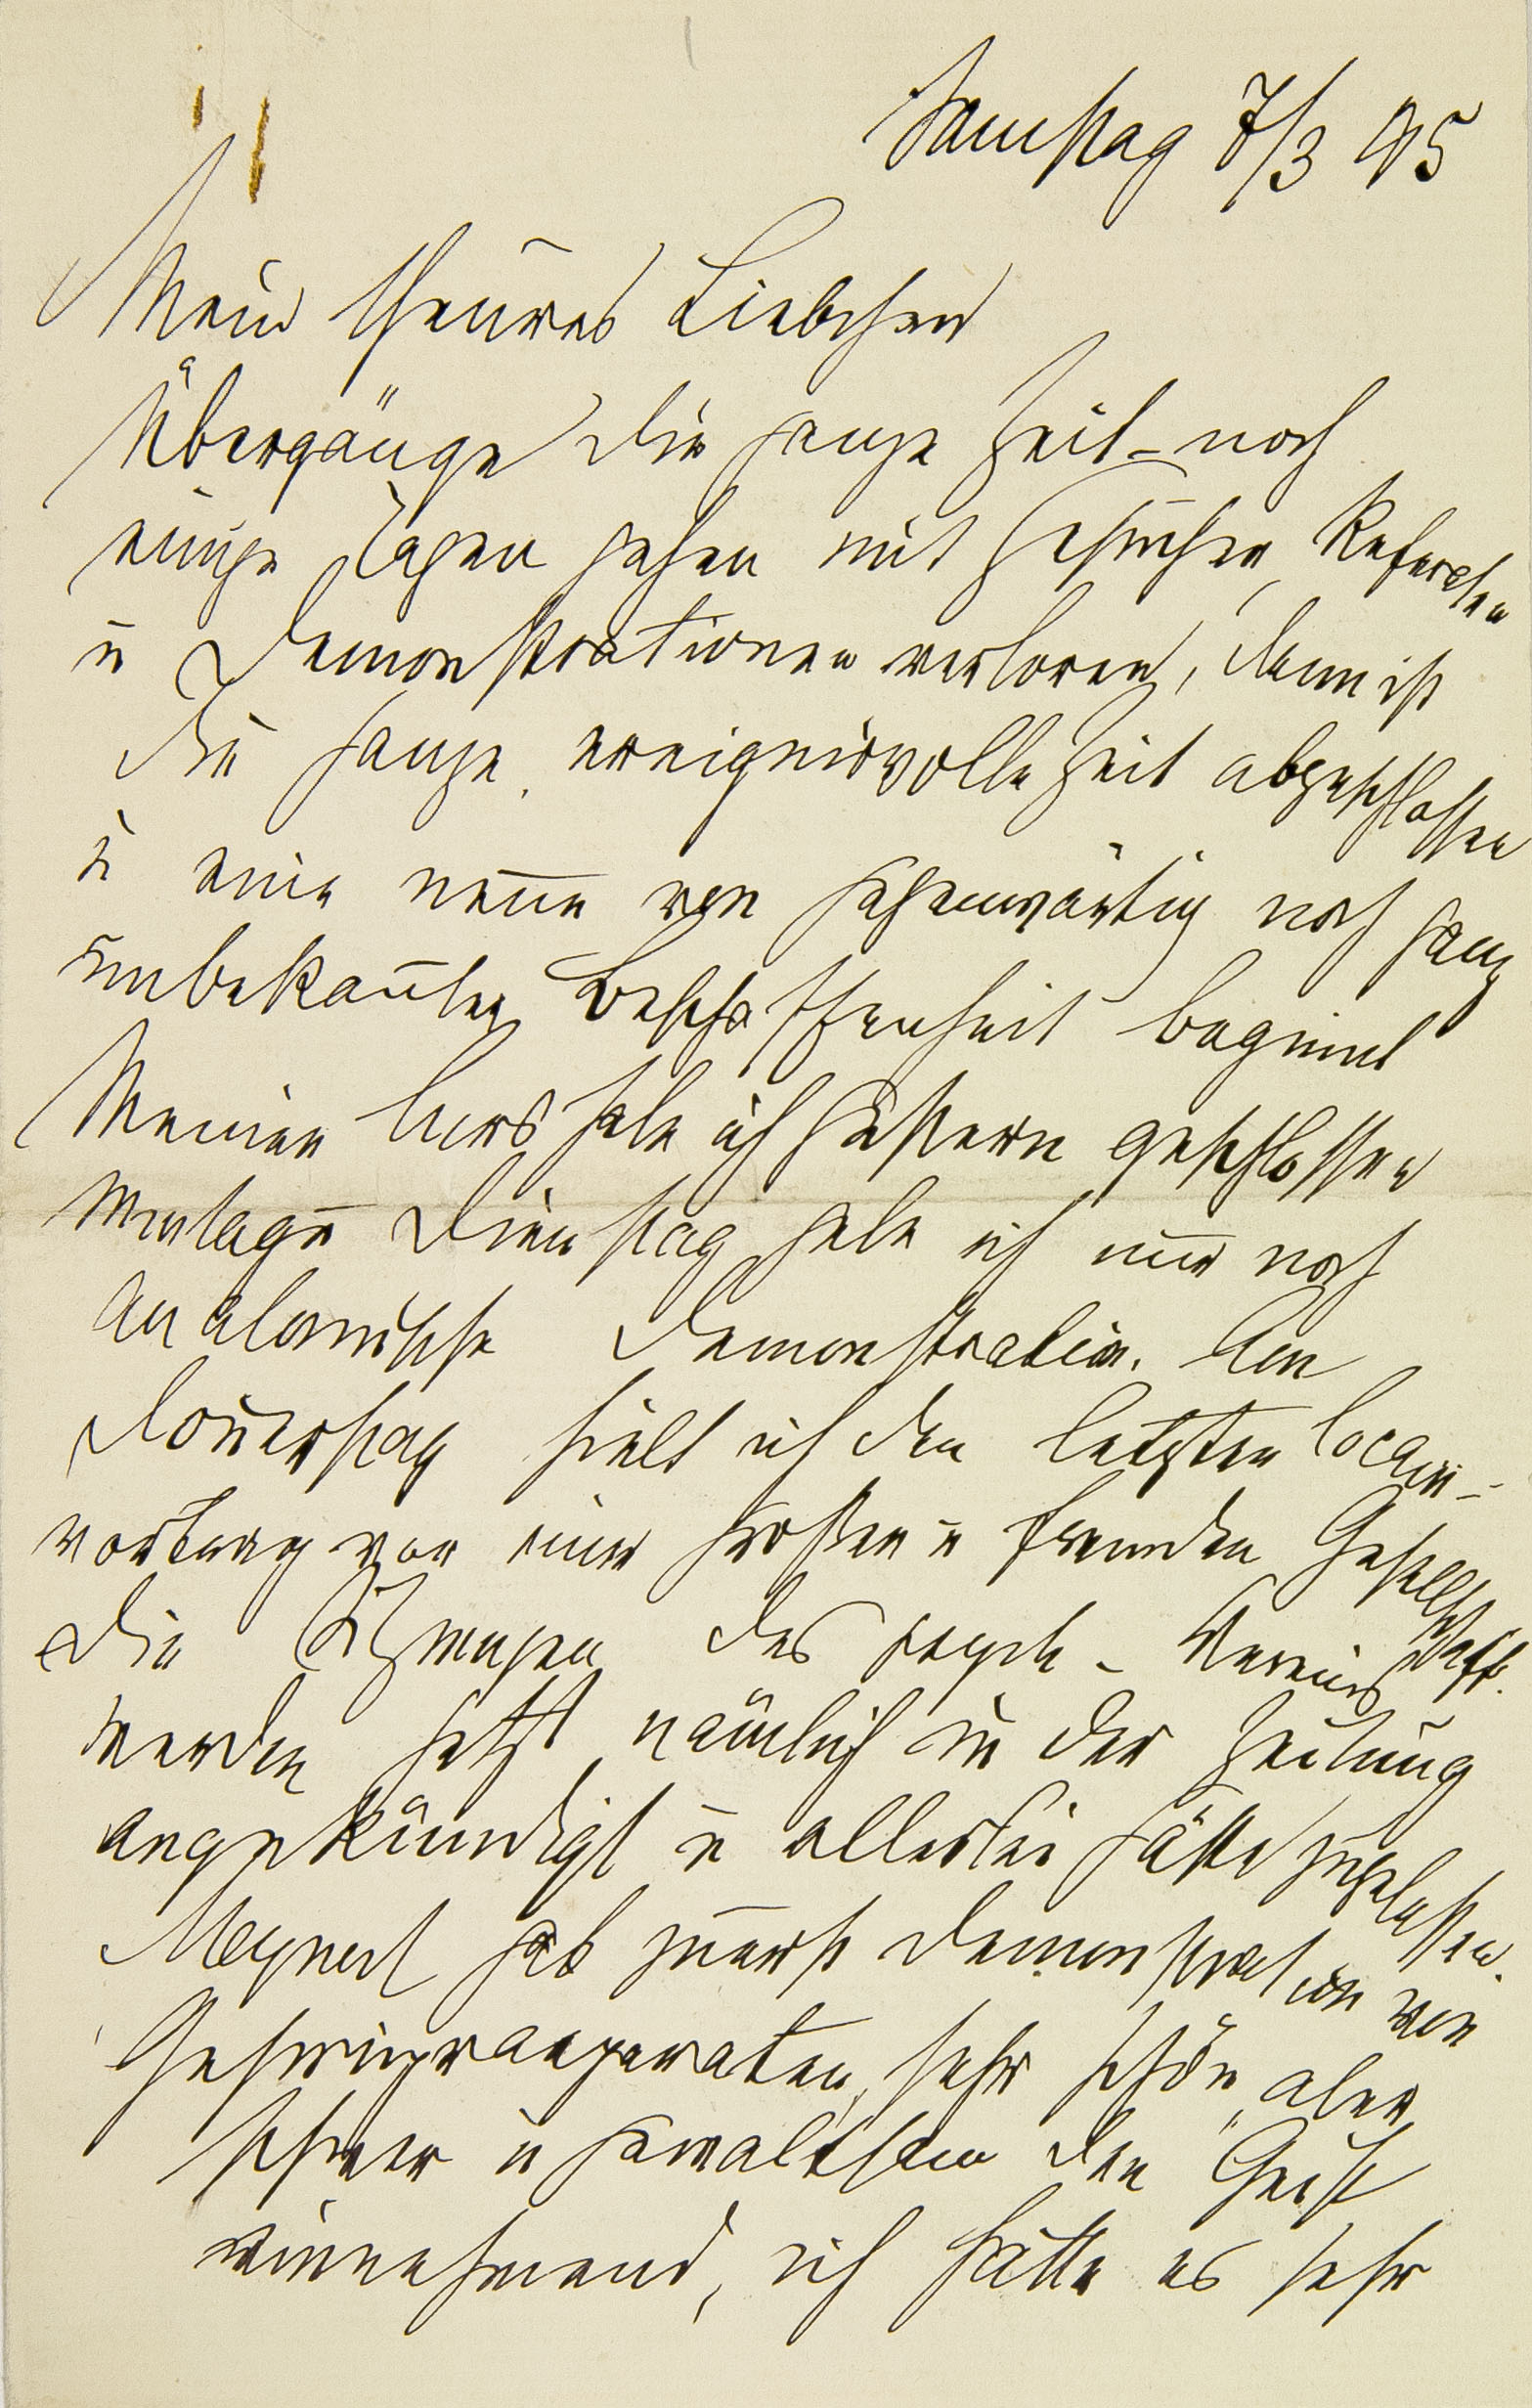 Samstag 7/3 85
Mein theures Liebchen
Übergänge die ganze Zeit – noch
einige Tagen gehen mit Gesuchen, Referaten
u Demonstrationen verloren, dann ist
die ganze ereignisvolle Zeit abgeschlossen
u eine neue von gegenwärtig noch ganz
unbekannter Beschaffenheit beginnt
Meinen Curs habe ich gestern geschlossen
Montag u Dienstag habe ich nur noch
anatomische Demonstration. Am
Donnerstag hielt ich den letzten Cocain-
vortrag vor einer großen u fremden Gesellschaft.
Die Sitzungen des psych – Vereins
werden jetzt nämlich in der Zeitung
angekündigt u allerlei Gäste zugelassen.
Meynert gab zuerst Demonstration von
Gehirnpraeparaten, sehr schön, aber
schwer u gewaltsam den Geist
einnehmend, ich hatte es sehr